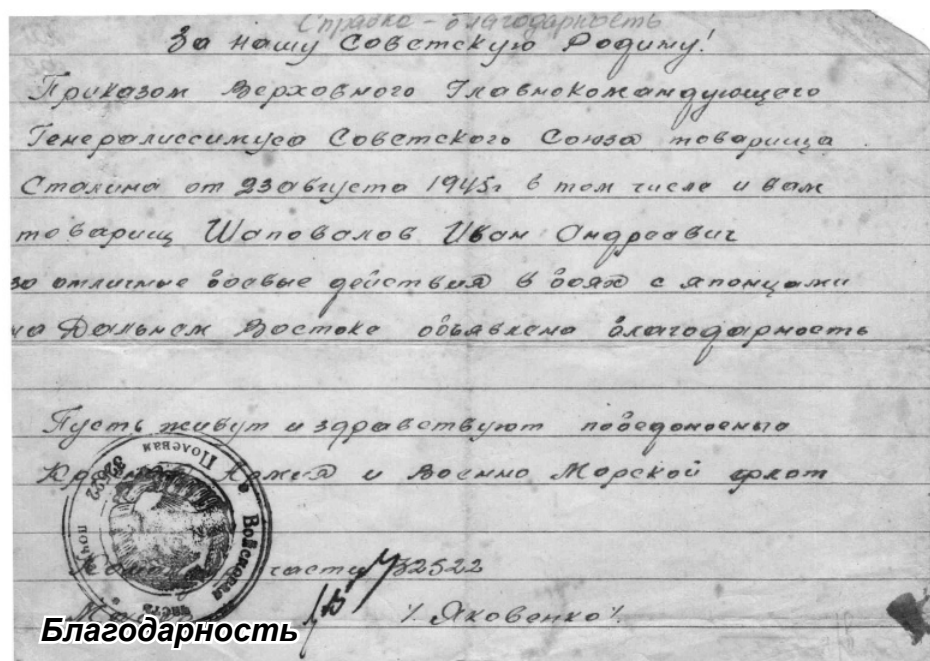 Справка - благодарность
За нашу Советскую Родину!
Приказом Верховного Главнокомандующего
Генералиссимуса Советского Союза товарища
Сталина от 23 августа 1945г в том числе и вам
товарищ Шаповалов Иван Андреевич
за отличные боевые действия в боях с японцами
на Дальнем Востоке объявлена благодарность
Пусть живут и здравствуют победоносные
Красная Армия и Военно Морской флот
части 32522
/. Яковенко /.
Войсковая часть Полевая почта 32522
Благодарность